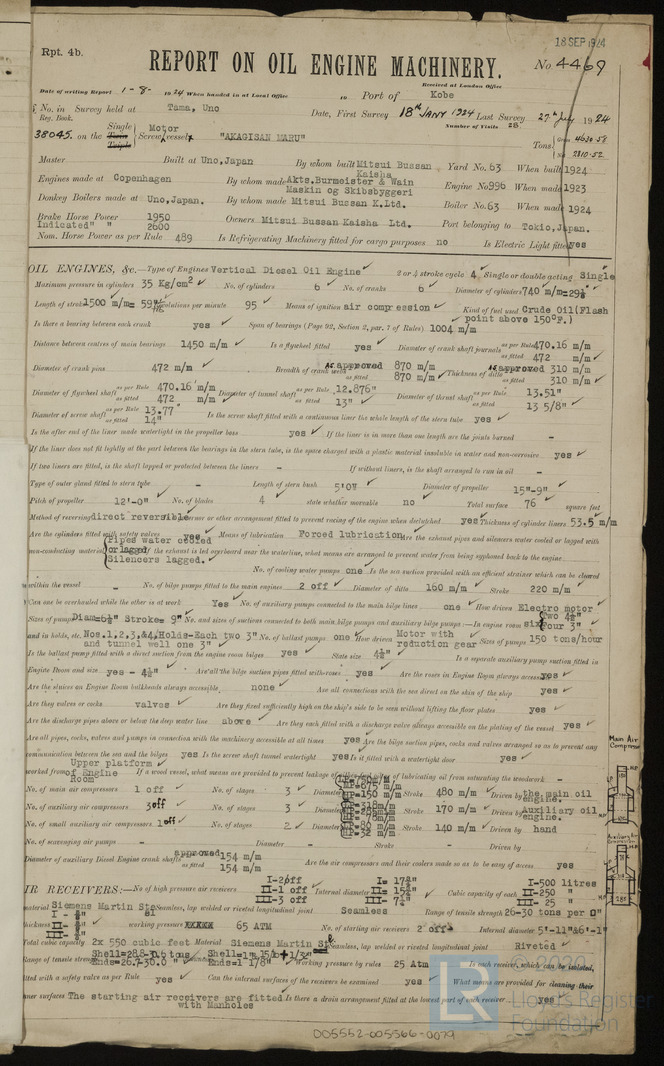 18 SEP 1924
Rpt. 4b.
REPORT ON OIL ENGINE MACHINERY.
No 4469
Received at London Office
Date of writing Report 1-8- 1924 When handed in at Local Office 10 Port of Kobe
No. in Reg. Book. Survey held at Tama, Uno Date, First Survey 18th JANY 1924 Last Survey 27th July 1924
Number of Visits 28
38045. on the Single Screw vessel Motor "AKAGISAN MARU" Tons Gross 4634.58 Net 2810.52
Master Built at Uno, Japan By whom built Mitsui Bussan Kaisha Yard No. 63 When built 1924
Engines made at Copenhagen By whom made Akts. Burmeister & Wain Maskin og Skibsbyggeri Engine No 996 When made 1923
Donkey Boilers made at Uno, Japan. By whom made Mitsui Bussan K. Ltd. Boiler No. 63 When made 1924
Brake Horse Power 1950 Owners Mitsui Bussan Kaisha Ltd. Port belonging to Tokio, Japan.
Indicated " " 2600
Nom. Horse Power as per Rule 489 Is Refrigerating Machinery fitted for cargo purposes no Is Electric Light fitted yes
OIL ENGINES, &c.—Type of Engines Vertical Diesel Oil Engine 2 or 4 stroke cycle 4 Single or double acting Single
Maximum pressure in cylinders 35 Kg/cm² No. of cylinders 6 No. of cranks 6 Diameter of cylinders 740 m/m=29⅛"
Length of stroke 1500 m/m= Revolutions per minute 95 Means of ignition air compression Kind of fuel used Crude Oil (Flash point above 150°F.)
Is there a bearing between each crank yes Span of bearings (Page 92, Section 2, par. 7 of Rules) 1004 m/m
Distance between centres of main bearings 1450 m/m Is a flywheel fitted yes Diameter of crank shaft journals as per Rule 470.16 m/m as fitted 472 m/m
Diameter of crank pins 472 m/m Breadth of crank webs As approved 870 m/m as fitted 870 m/m Thickness of ditto As approved 310 m/m as fitted 310 m/m
Diameter of flywheel shaft as per Rule 470.16 m/m as fitted 472 m/m Diameter of tunnel shaft as per Rule 12.876" as fitted 13" Diameter of thrust shaft as per Rule 13.51" as fitted 13 5/8"
Diameter of screw shaft as per Rule 13.77 as fitted 14" Is the screw shaft fitted with a continuous liner the whole length of the stern tube yes
Is the after end of the liner made watertight in the propeller boss yes If the liner is in more than one length are the joints burned -
If the liner does not fit tightly at the part between the bearings in the stern tube, is the space charged with a plastic material insoluble in water and non-corrosive yes
If two liners are fitted, is the shaft lapped or protected between the liners - If without liners, is the shaft arranged to run in oil -
Type of outer gland fitted to stern tube - Length of stern bush 5'0" Diameter of propeller 15"-9"
Pitch of propeller 12'-0" No. of blades 4 state whether moveable no Total surface 76 square feet
Method of reversing direct reversible or other arrangement fitted to prevent racing of the engine when declutched yes Thickness of cylinder liners 53.5 m/m
Are the cylinders fitted with safety valves yes Means of lubrication Forced lubrication Are the exhaust pipes and silencers water cooled or lagged with
non-conducting material Pipes water cooled or lagged Silencers lagged. If the exhaust is led overboard near the waterline, what means are arranged to prevent water from being syphoned back to the engine
No. of cooling water pumps one Is the sea suction provided with an efficient strainer which can be cleared
within the vessel - No. of bilge pumps fitted to the main engines 2 off Diameter of ditto 160 m/m Stroke 220 m/m
Can one be overhauled while the other is at work Yes No. of auxiliary pumps connected to the main bilge lines one How driven Electro motor
Sizes of pumps Diam=6½" Stroke= 9" No. and sizes of suctions connected to both main bilge pumps and auxiliary bilge pumps :—In engine room six Two 4½" Four 3"
and in holds, etc. Nos.1,2,3,&4,Holds-Each two 3" and tunnel well one 3" No. of ballast pumps one How driven Motor with reduction gear Sizes of pumps 150 tons/hour
Is the ballast pump fitted with a direct suction from the engine room bilges yes State size 4½" Is a separate auxiliary pump suction fitted in
Engine Room and size yes - 4½" Are all the bilge suction pipes fitted with roses yes Are the roses in Engine Room always accessible yes
Are the sluices on Engine Room bulkheads always accessible none Are all connections with the sea direct on the skin of the ship yes
Are they valves or cocks valves Are they fixed sufficiently high on the ship's side to be seen without lifting the floor plates yes
Are the discharge pipes above or below the deep water line above Are they each fitted with a discharge valve always accessible on the plating of the vessel yes
Are all pipes, cocks, valves and pumps in connection with the machinery accessible at all times yes Are the bilge suction pipes, cocks and valves arranged so as to prevent any
communication between the sea and the bilges yes Is the screw shaft tunnel watertight yes Is it fitted with a watertight door yes
worked from Upper platform of Engine Room If a wood vessel, what means are provided to prevent leakage of lubricating oil from saturating the woodwork -
No. of main air compressors 1 off No. of stages 3 Diameters Stroke 480 m/m Driven by the main oil engine.
No. of auxiliary air compressors 3 off No. of stages 3 Diameters Stroke 170 m/m Driven by Auxiliary oil engine.
No. of small auxiliary air compressors 1 off No. of stages 2 Diameters Stroke 140 m/m Driven by hand
No. of scavenging air pumps - Diameter - Stroke - Driven by
Diameter of auxiliary Diesel Engine crank shafts approved 154 m/m as fitted 154 m/m Are the air compressors and their coolers made so as to be easy of access yes
IR RECEIVERS:—No. of high pressure air receivers I-2off II-1 off III-3 off Internal diameter I= 17¾" II= 15¾" III- 7½" Cubic capacity of each I-500 litres II-250 " III- 25 "
material Siemens Martin Ste Seamless, lap welded or riveted longitudinal joint Seamless Range of tensile strength 26-30 tons per □"
thickness working pressure 65 ATM No. of starting air receivers 2 off Internal diameter 5'-11"&6'-1"
Total cubic capacity 2x 550 cubic feet Material Siemens Martin St Seamless, lap welded or riveted longitudinal joint Riveted
Range of tensile strength Shell=28.8-0.6 tons Ends=26.7-30.0 " Working pressure by rules 25 Atm Is each receiver, which can be isolated,
fitted with a safety valve as per Rule yes Can the internal surfaces of the receivers be examined yes What means are provided for cleaning their
inner surfaces The starting air receivers are fitted with Manholes Is there a drain arrangement fitted at the lowest part of each receiver yes
Main Air Compressor
Auxiliary Air Compressor
© 2020
Lloyd's Register
Foundation
005552-005566-0079